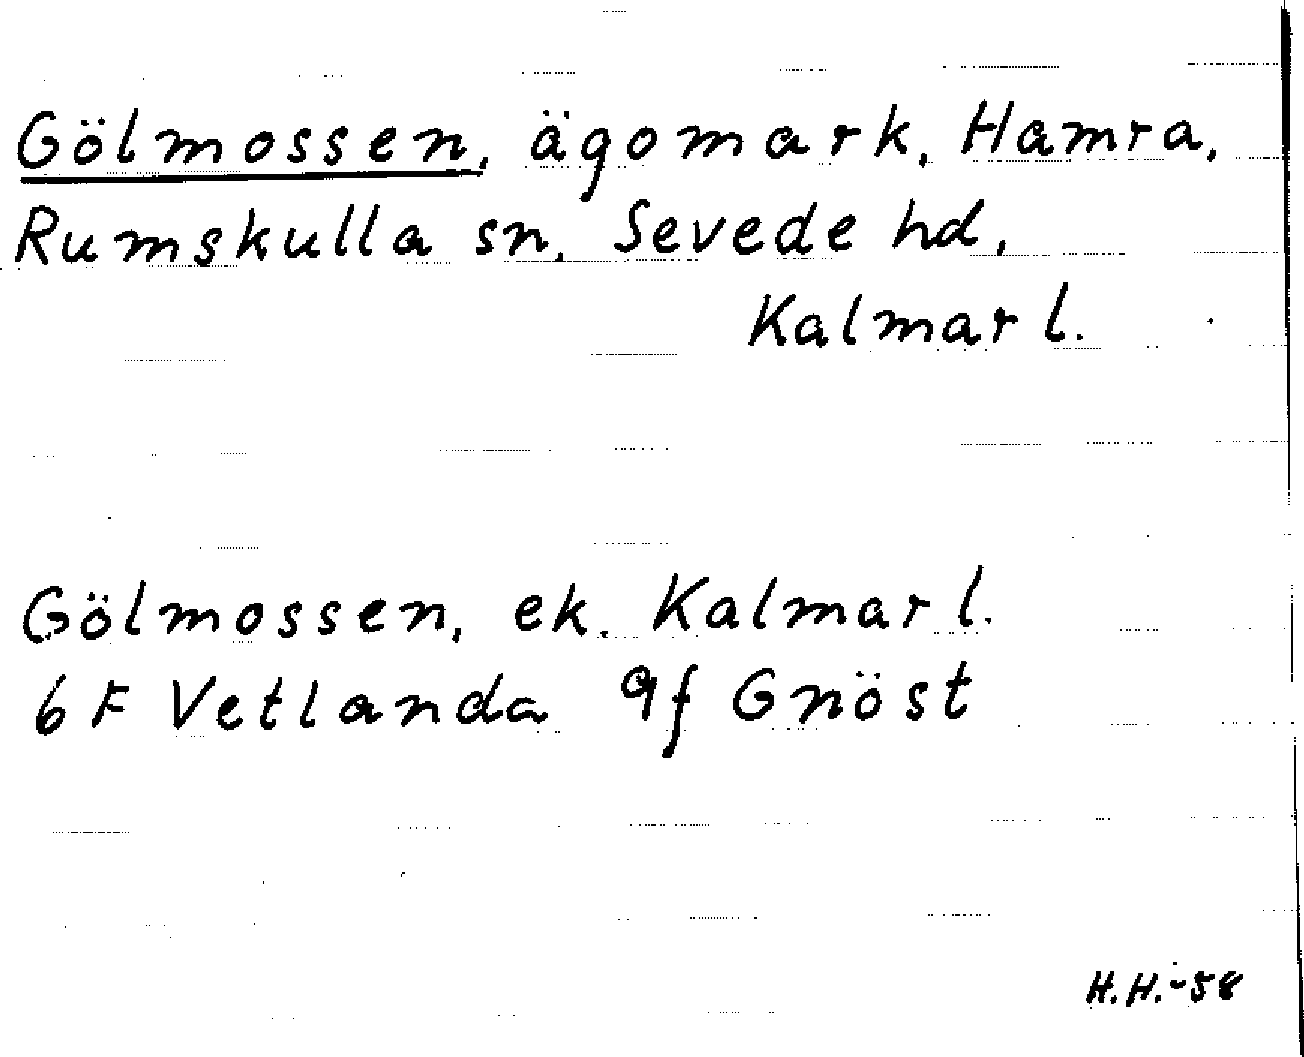 Gölmossen, ägomark, Hamra,
Rumskulla sn, Sevede hd,
Kalmar l.
Gölmossen, ek. Kalmar l.
6 F Vetlanda 9f Gnöst
H.H.-58